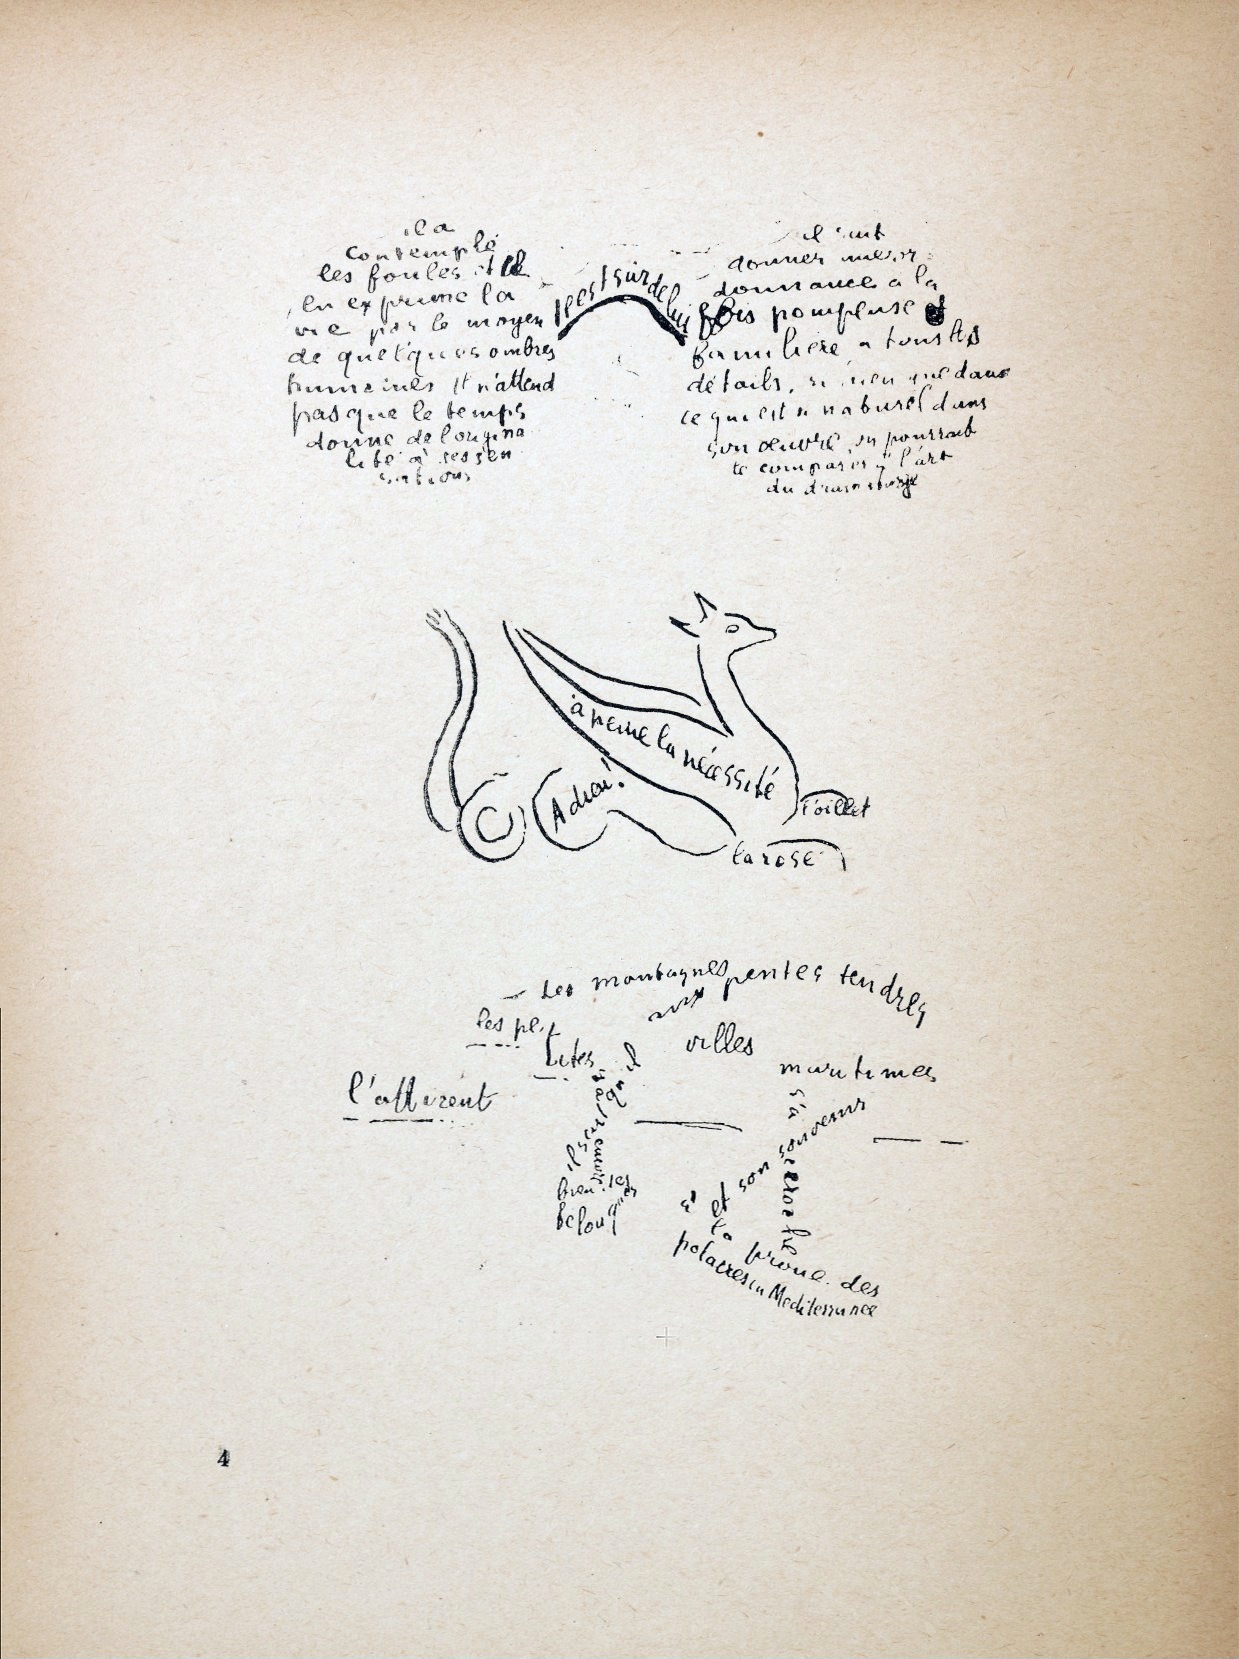 il a
contemplé
les foules et il
en exprime la
vie par le moyen
de quelques ombres
humaines Il n'attend
pas que le temps
donne de l'origina
lité à ses sen
sations
Il est sûr de lui
il sait
donner une or
donnance à la
fois pompeuse et
familière à tous les
détails, si bien que dans
ce qui est si naturel dans
son œuvre on pourrait
le comparer à l'art
du dramaturge
à peine la nécessité
Adieu!
l'œillet
la rose
Les montagnes pentes tendres
aux
villes
maritimes
les pe
tites
l'attirent
bien les
et son souvenir
s'accroche
à
et la proue des
polacres en Méditerranée
4